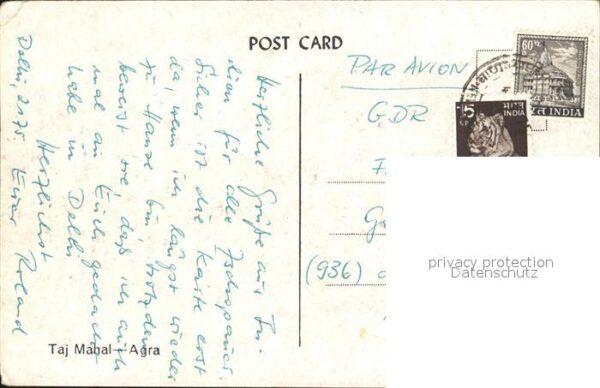 POST CARD
Herzliche Grüße aus In-
dien für alle Zschopauer.
Sicher ist die Karte erst
da, wenn ich längst wieder
zu Hause bin, trotzdem
beweist sie, daß ich auch
mal an Euch gedacht
habe in Delhi.
Herzlichst
Euer Roland
Delhi, 2.1.75
Taj Mahal – Agra
PAR AVION
GDR
(936)
60
INDIA
INDIA
privacy protection
Datenschutz